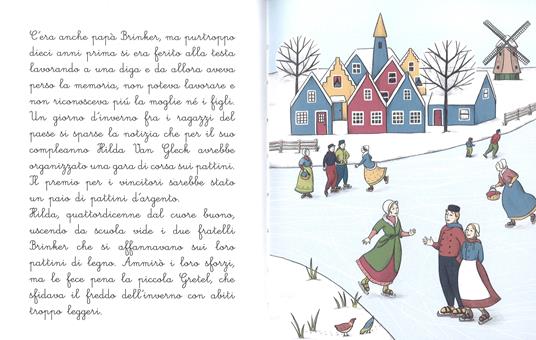 C'era anche papà Brinker, ma purtroppo
dieci anni prima si era ferito alla testa
lavorando a una diga e da allora aveva
perso la memoria, non poteva lavorare e
non riconosceva più la moglie né i figli.
Un giorno d'inverno fra i ragazzi del
paese si sparse la notizia che per il suo
compleanno Hilda Van Gleck avrebbe
organizzato una gara di corsa sui pattini.
Il premio per i vincitori sarebbe stato
un paio di pattini d'argento.
Hilda, quattordicenne dal cuore buono,
uscendo da scuola vide i due fratelli
Brinker che si affannavano sui loro
pattini di legno. Ammirò i loro sforzi,
ma le fece pena la piccola Gretel, che
sfidava il freddo dell'inverno con abiti
troppo leggeri.